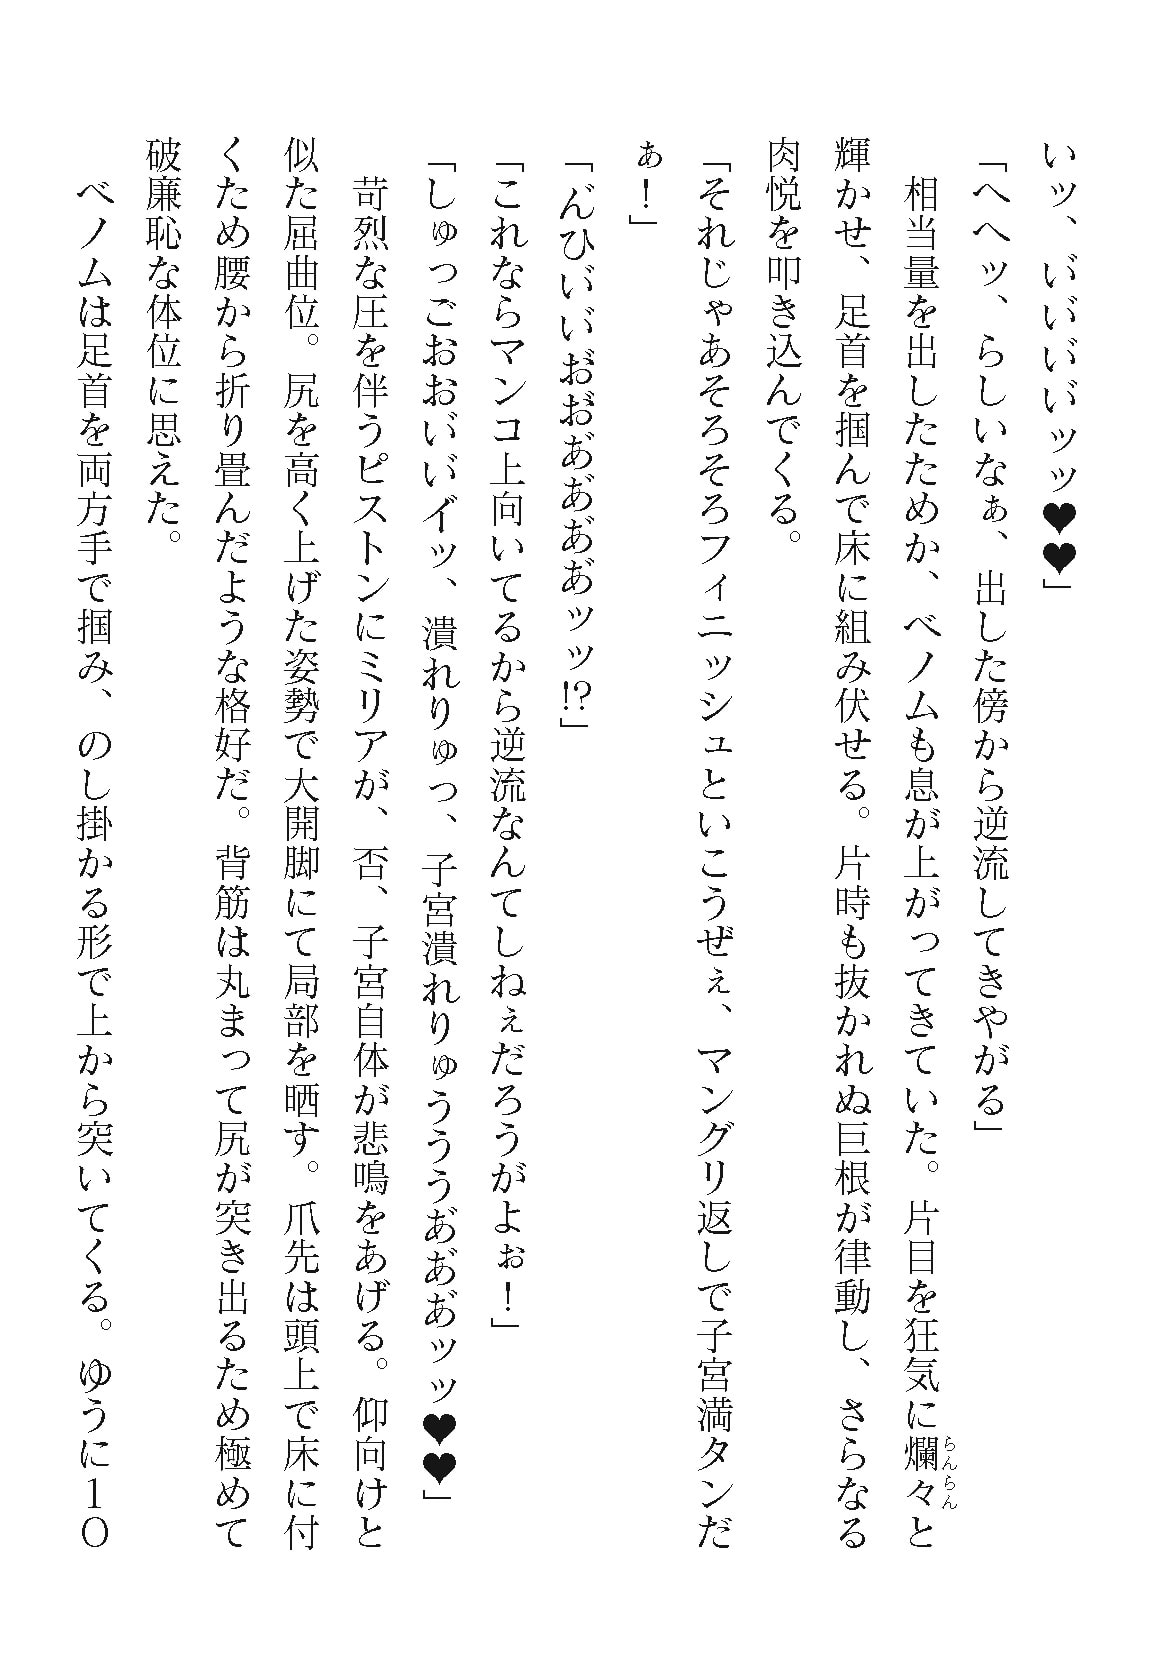 いッ、い゙い゙い゙い゙ッッ♥♥」
「へへッ、らしいなぁ、出した傍から逆流してきやがる」
　相当量を出したためか、ベノムも息が上がってきていた。片目を狂気に爛々と
輝かせ、足首を掴んで床に組み伏せる。片時も抜かれぬ巨根が律動し、さらなる
肉悦を叩き込んでくる。
「それじゃあそろそろフィニッシュといこうぜぇ、マングリ返しで子宮満タンだ
ぁ！」
「ん゙ひい゙い゙お゙お゙あ゙あ゙あ゙あ゙ッッ!?」
「これならマンコ上向いてるから逆流なんてしねぇだろうがよぉ！」
「しゅっごおおい゙い゙イ゙ッ、潰れりゅっ、子宮潰れりゅうううあ゙あ゙あ゙ッッ♥♥」
　苛烈な圧を伴うピストンにミリアが、否、子宮自体が悲鳴をあげる。仰向けと
似た屈曲位。尻を高く上げた姿勢で大開脚にて局部を晒す。爪先は頭上で床に付
くため腰から折り畳んだような格好だ。背筋は丸まって尻が突き出るため極めて
破廉恥な体位に思えた。
　ベノムは足首を両方手で掴み、のし掛かる形で上から突いてくる。ゆうに１０